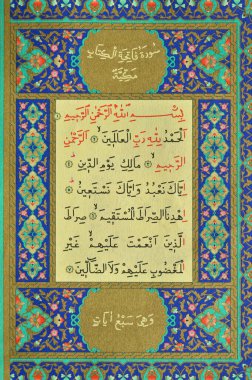 سورة فاتحة الكتاب
مكية
بِسْمِ اللّٰهِ الرَّحْمٰنِ الرَّحِيمِ
اَلْحَمْدُ لِلّٰهِ رَبِّ الْعَالَمِينَ اَلرَّحْمٰنِ
الرَّحِيمِ مَالِكِ يَوْمِ الدِّينِ
اِيَّاكَ نَعْبُدُ وَاِيَّاكَ نَسْتَعِينُ
اِهْدِنَا الصِّرَاطَ الْمُسْتَقِيمَ صِرَاطَ
الَّذِينَ اَنْعَمْتَ عَلَيْهِمْ غَيْرِ
الْمَغْضُوبِ عَلَيْهِمْ وَلَا الضَّالِّينَ
وهي سبع آيات